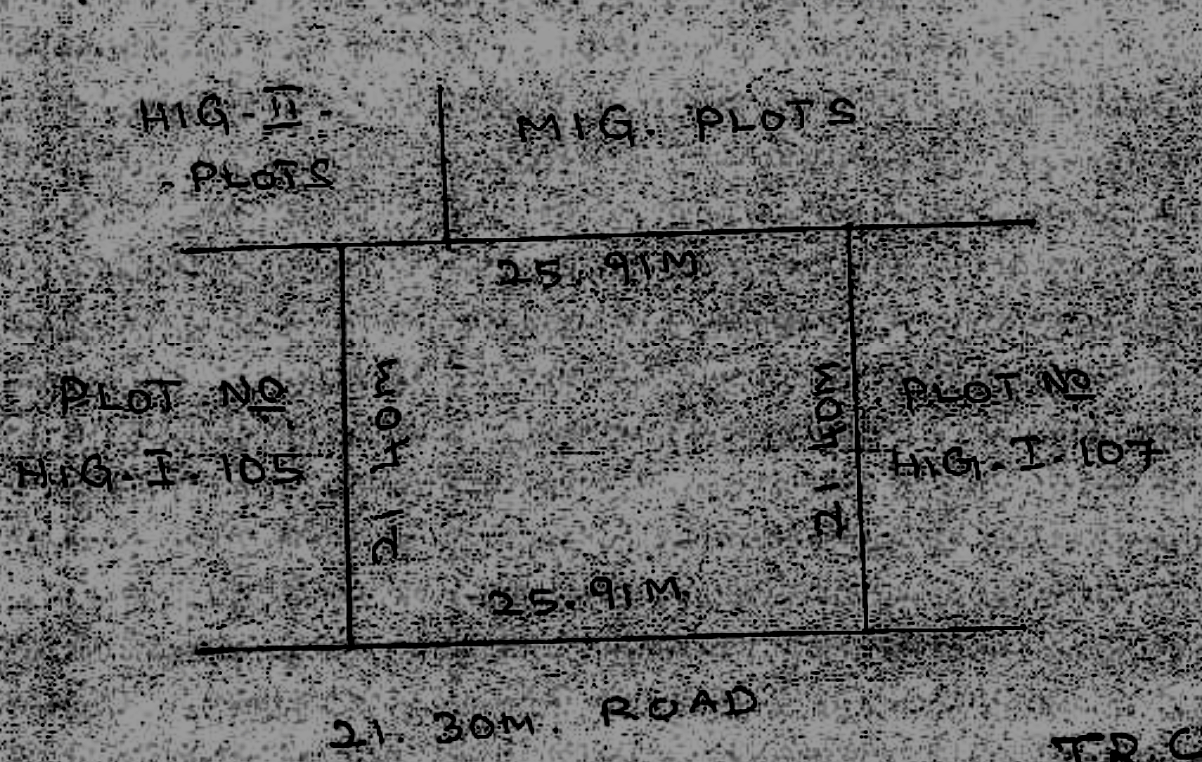 HIG-II-
PLOTS
MIG. PLOTS
25.91M
PLOT NO
HIG-I-105
21.40M
21.40M
PLOT NO
HIG-I-107
25.91M
21.30M. ROAD